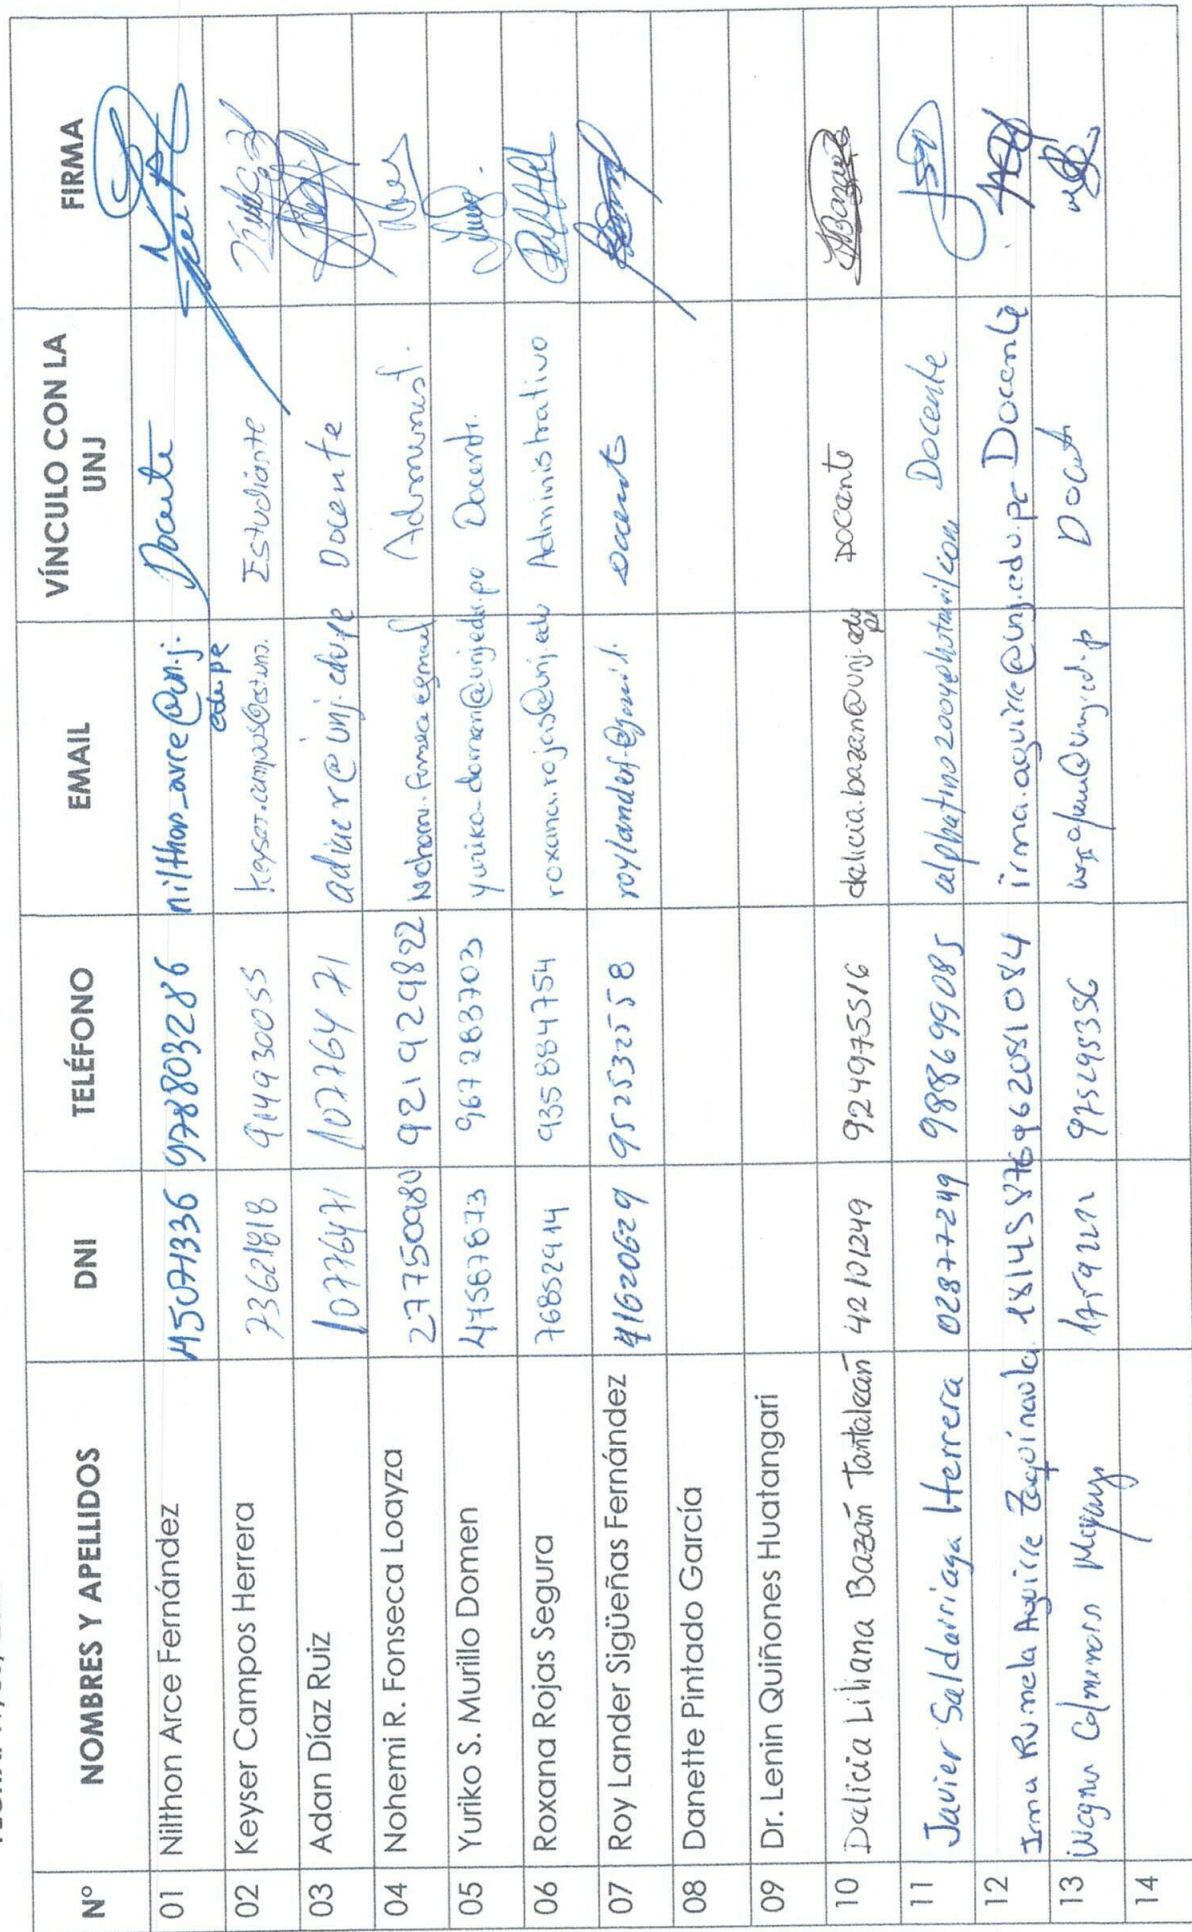 Nº NOMBRES Y APELLIDOS DNI TELÉFONO EMAIL VÍNCULO CON LA UNJ FIRMA
01 Nilthon Arce Fernández 45071336 978803286 nilthon_arce@unj.edu.pe Docente
02 Keyser Campos Herrera 73621818 914930055 Estudiante
03 Adan Díaz Ruiz 10776471 10776471 Docente
04 Nohemi R. Fonseca Loayza 27750980 921929822 Administ.
05 Yuriko S. Murillo Domen 47587873 967283703 Docente.
06 Roxana Rojas Segura 76852914 935884754 roxana.rojas@unj.edu Administrativo
07 Roy Lander Sigüeñas Fernández 41620629 952532558 Docente
08 Danette Pintado García
09 Dr. Lenin Quiñones Huatangari
10 Delicia Liliana Bazán Tantaleán 42101249 924975516 delicia.bazan@unj.edu.pe Docente
11 Javier Saldarriaga Herrera 02877249 988699085 Docente
12 Irma Rumela Aguirre Zaquinaula 962081084 irma.aguirre@unj.edu.pe Docente
13 Wagner Colmenares 975295356 Docente
14